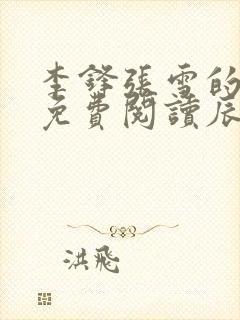 李鋒張雪的
免費閱讀辰
洪飛